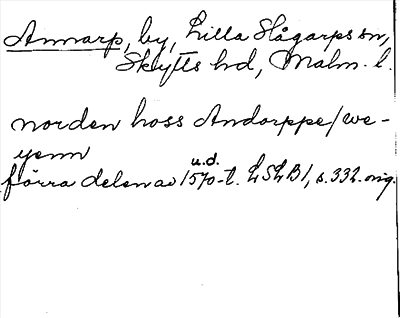 Annarp, by, Lilla Slågarps sn,
Skytts hd, Malm. l.
norden hoss Andorppe/we-
yenn
u.d.
förra delen av 1570-t. LSLB1, s. 332. orig.